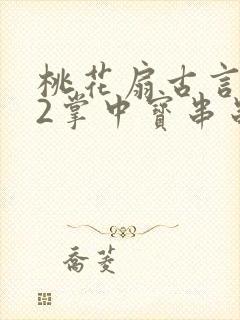 桃花扇古言
2掌中寳串
喬菱